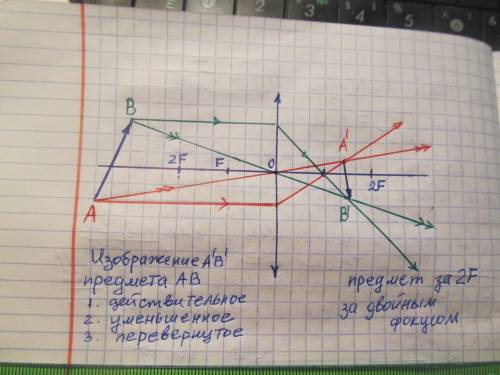 B
A'
2F
F
O
2F
A
B'
Изображение A'B'
предмета AB
1. действительное
2. уменьшенное
3. перевернутое
предмет за 2F
за двойным
фокусом